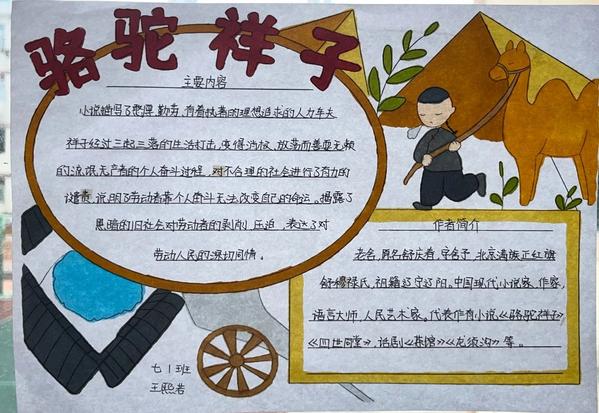 骆驼祥子
主要内容
小说描写了憨厚、勤劳、有着执着的理想追求的人力车夫
祥子经过三起三落的生活打击,变得消极、放荡而善耍无赖
的流氓无产者的个人奋斗过程,对不合理的社会进行了有力的
谴责,说明了劳动者靠个人奋斗无法改变自己的命运。揭露了
黑暗的旧社会对劳动者的剥削、压迫,表达了对
劳动人民的深切同情。
作者简介
老舍,原名舒庆春,字舍予,北京满族正红旗
舒穆禄氏,祖籍辽宁辽阳。中国现代小说家、作家,
语言大师、人民艺术家。代表作有小说《骆驼祥子》
《四世同堂》,话剧《茶馆》《龙须沟》等。
七1班
王熙若